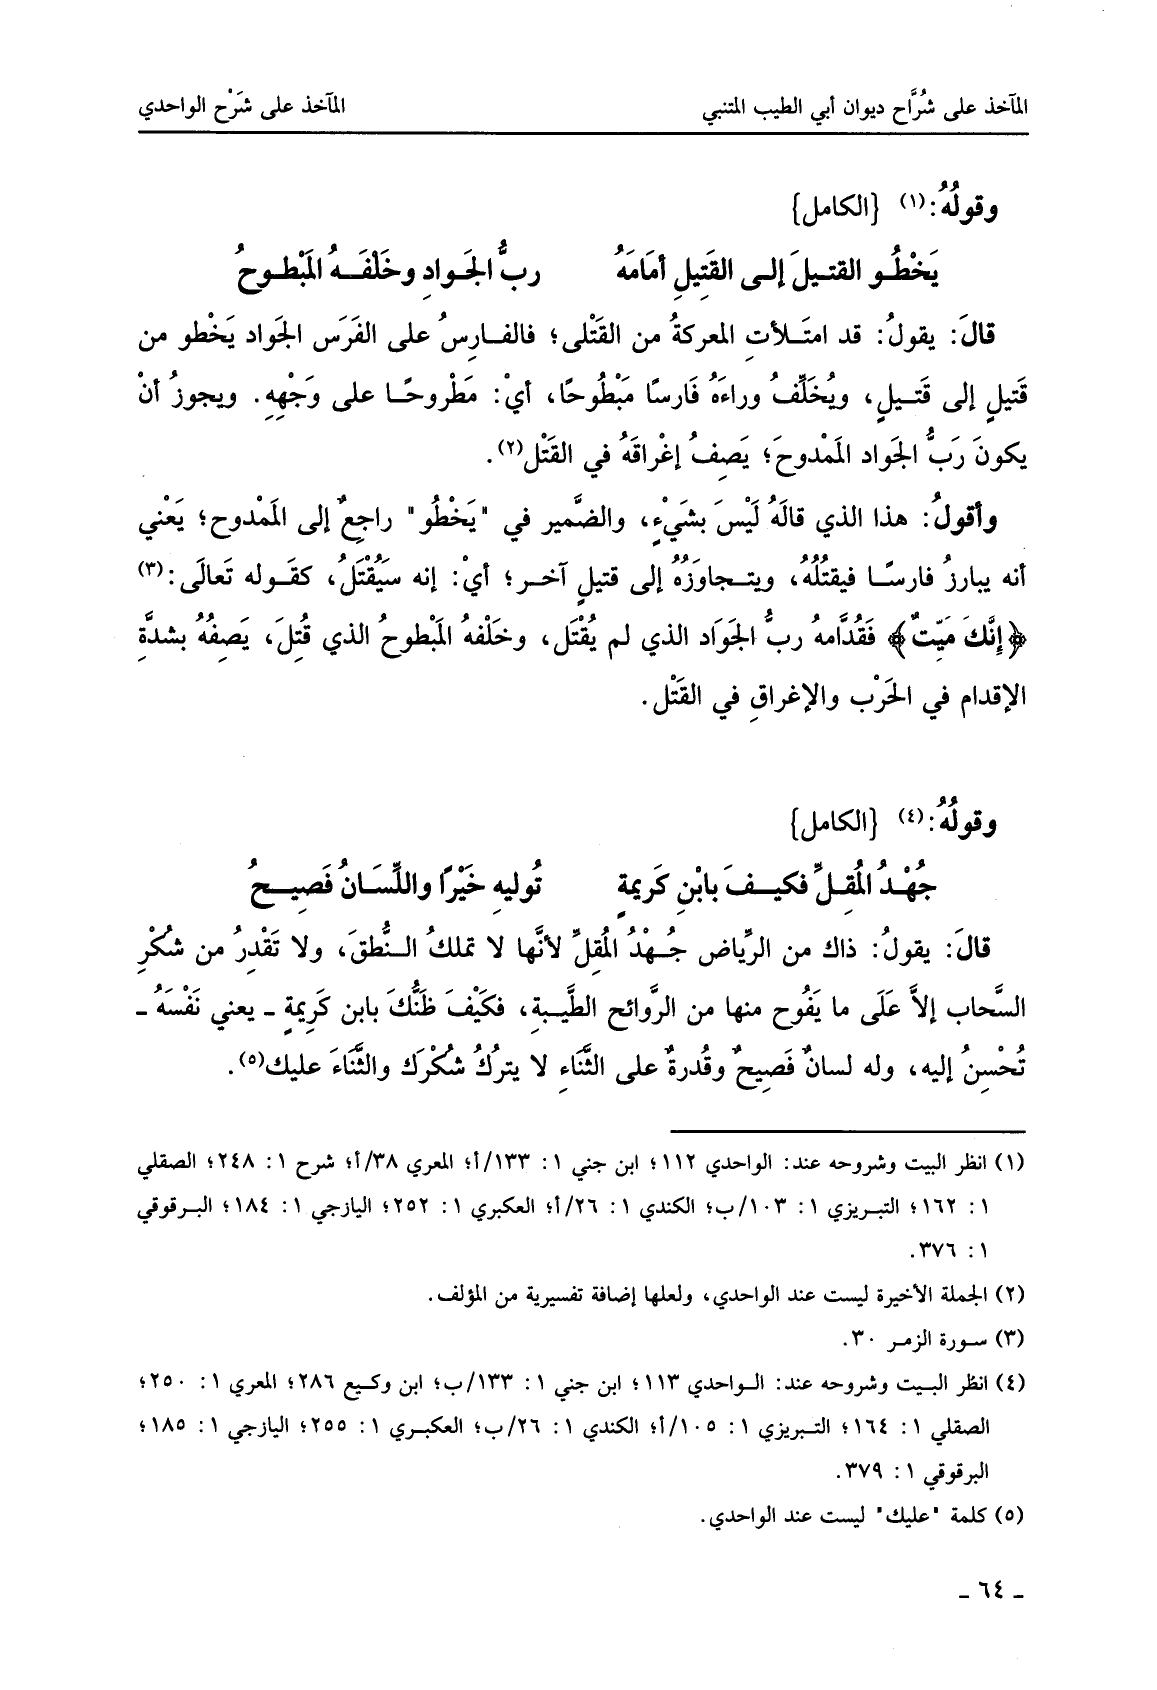 المآخذ على شُرَّاح ديوان أبي الطيب المتنبي المآخذ على شَرْح الواحدي
وقولُهُ:(١) {الكامل}
يَخْطُو القتيلَ إلى القَتِيلِ أمَامَهُ ربُّ الجَوادِ وخَلْفَهُ المَبْطوحُ
قالَ: يقولُ: قد امتَلأتِ المعركةُ من القَتْلى؛ فالفارِسُ على الفَرَس الجَواد يَخْطو من
قَتيلٍ إلى قَتيلٍ، ويُخَلِّفُ وراءَهُ فَارسًا مَبْطُوحًا، أيْ: مَطْروحًا على وَجْهِهِ. ويجوزُ أنْ
يكونَ رَبُّ الجَواد المَمْدوحَ؛ يَصِفُ إغْراقَهُ في القَتْل(٢).
وأقولُ: هذا الذي قالَهُ لَيْسَ بشَيْءٍ، والضَّمير في "يَخْطُو" راجِعٌ إلى المَمْدوح؛ يَعْني
أنه يبارزُ فارسًا فيقتُلُهُ، ويتجاوَزُهُ إلى قتيلٍ آخر؛ أيْ: إنه سَيُقْتَلُ، كقَوله تَعالَى:(٣)
﴿إِنَّكَ مَيِّتٌ﴾ فَقُدَّامهُ ربُّ الجَوَاد الذي لم يُقْتَل، وخَلْفهُ المَبْطوحُ الذي قُتِلَ، يَصِفُهُ بشدَّةِ
الإقدام في الحَرْب والإغراقِ في القَتْل.
وقولُهُ:(٤) {الكامل}
جُهْدُ المُقِلِّ فكيفَ بابْنِ كَريمةٍ تُوليهِ خَيْرًا واللِّسَانُ فَصِيحُ
قالَ: يقولُ: ذاك من الرِّياض جُهْدُ المُقِلِّ لأنَّها لا تملكُ النُّطقَ، ولا تَقْدِرُ من شُكْرِ
السَّحاب إلاَّ عَلَى ما يَفُوح منها من الرَّوائح الطَّيبةِ، فكَيْفَ ظَنُّكَ بابن كَريمةٍ - يعني نَفْسَهُ -
تُحْسِنُ إليه، وله لسانٌ فَصِيحٌ وقُدرةٌ على الثَّنَاءِ لا يتركُ شُكْرَك والثَّنَاءَ عليك(٥).
(١) انظر البيت وشروحه عند: الواحدي ١١٢؛ ابن جني ١: ١٣٣/أ؛ المعري ٣٨/أ؛ شرح ١: ٢٤٨؛ الصقلي
١: ١٦٢؛ التبريزي ١: ١٠٣/ب؛ الكندي ١: ٢٦/أ؛ العكبري ١: ٢٥٢؛ اليازجي ١: ١٨٤؛ البرقوقي
١: ٣٧٦.
(٢) الجملة الأخيرة ليست عند الواحدي، ولعلها إضافة تفسيرية من المؤلف.
(٣) سورة الزمر ٣٠.
(٤) انظر البيت وشروحه عند: الواحدي ١١٣؛ ابن جني ١: ١٣٣/ب؛ ابن وكيع ٢٨٦؛ المعري ١: ٢٥٠؛
الصقلي ١: ١٦٤؛ التبريزي ١: ١٠٥/أ؛ الكندي ١: ٢٦/ب؛ العكبري ١: ٢٥٥؛ اليازجي ١: ١٨٥؛
البرقوقي ١: ٣٧٩.
(٥) كلمة "عليك" ليست عند الواحدي.
- ٦٤ -